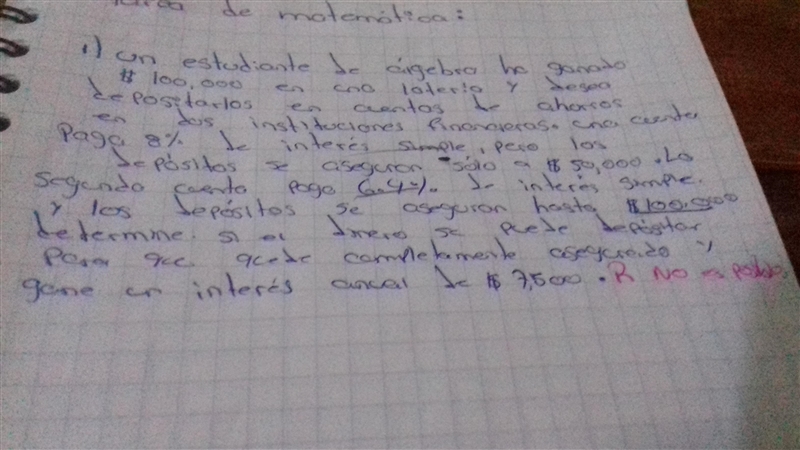 tarea de matemática:
1) un estudiante de álgebra ha ganado
$ 100,000 en una lotería y desea
depositarlos en cuentas de ahorros
en dos instituciones financieras. una cuenta
Paga 8% de interés simple, pero los
depósitos se aseguran sólo a $ 50,000. La
segunda cuenta paga 6.4% de interés simple.
y los depósitos se aseguran hasta $100,000
determine. si el dinero se puede depósitar
para que quede completamente asegurado y
gane un interés anual de $ 7,500. R No es posible